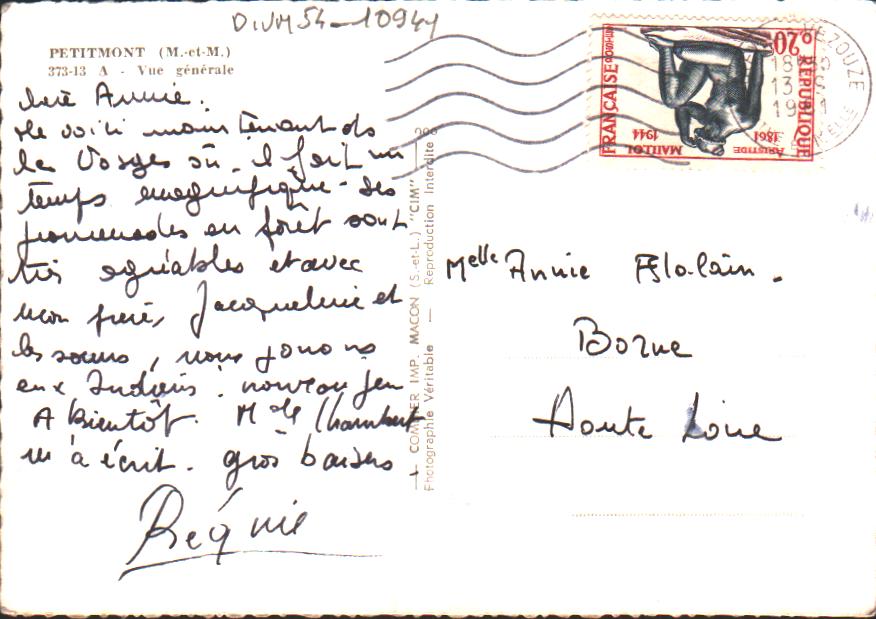 DIVM54-10941
PETITMONT (M.-et-M.)
373-13 A - Vue générale
Annie.
Me voici maintenant ds
les Vosges où il fait un
temps magnifique. Les
promenades en forêt sont
très agréables et avec
mon frère, Jacqueline et
les sœurs, nous jouons
aux Indiens : nouveau jeu
A Bientôt. Melle Chambert
m'a écrit. gros baisers
COMBIER IMP. MACON (S.-et-L.) "CIM"
Photographie Véritable — Reproduction Interdite
RÉPUBLIQUE
FRANÇAISE
POSTES
0,20
ARISTIDE MAILLOL
1861 1944
VEZOUZE
18H
13
Melle Annie
Borne
Haute Loire